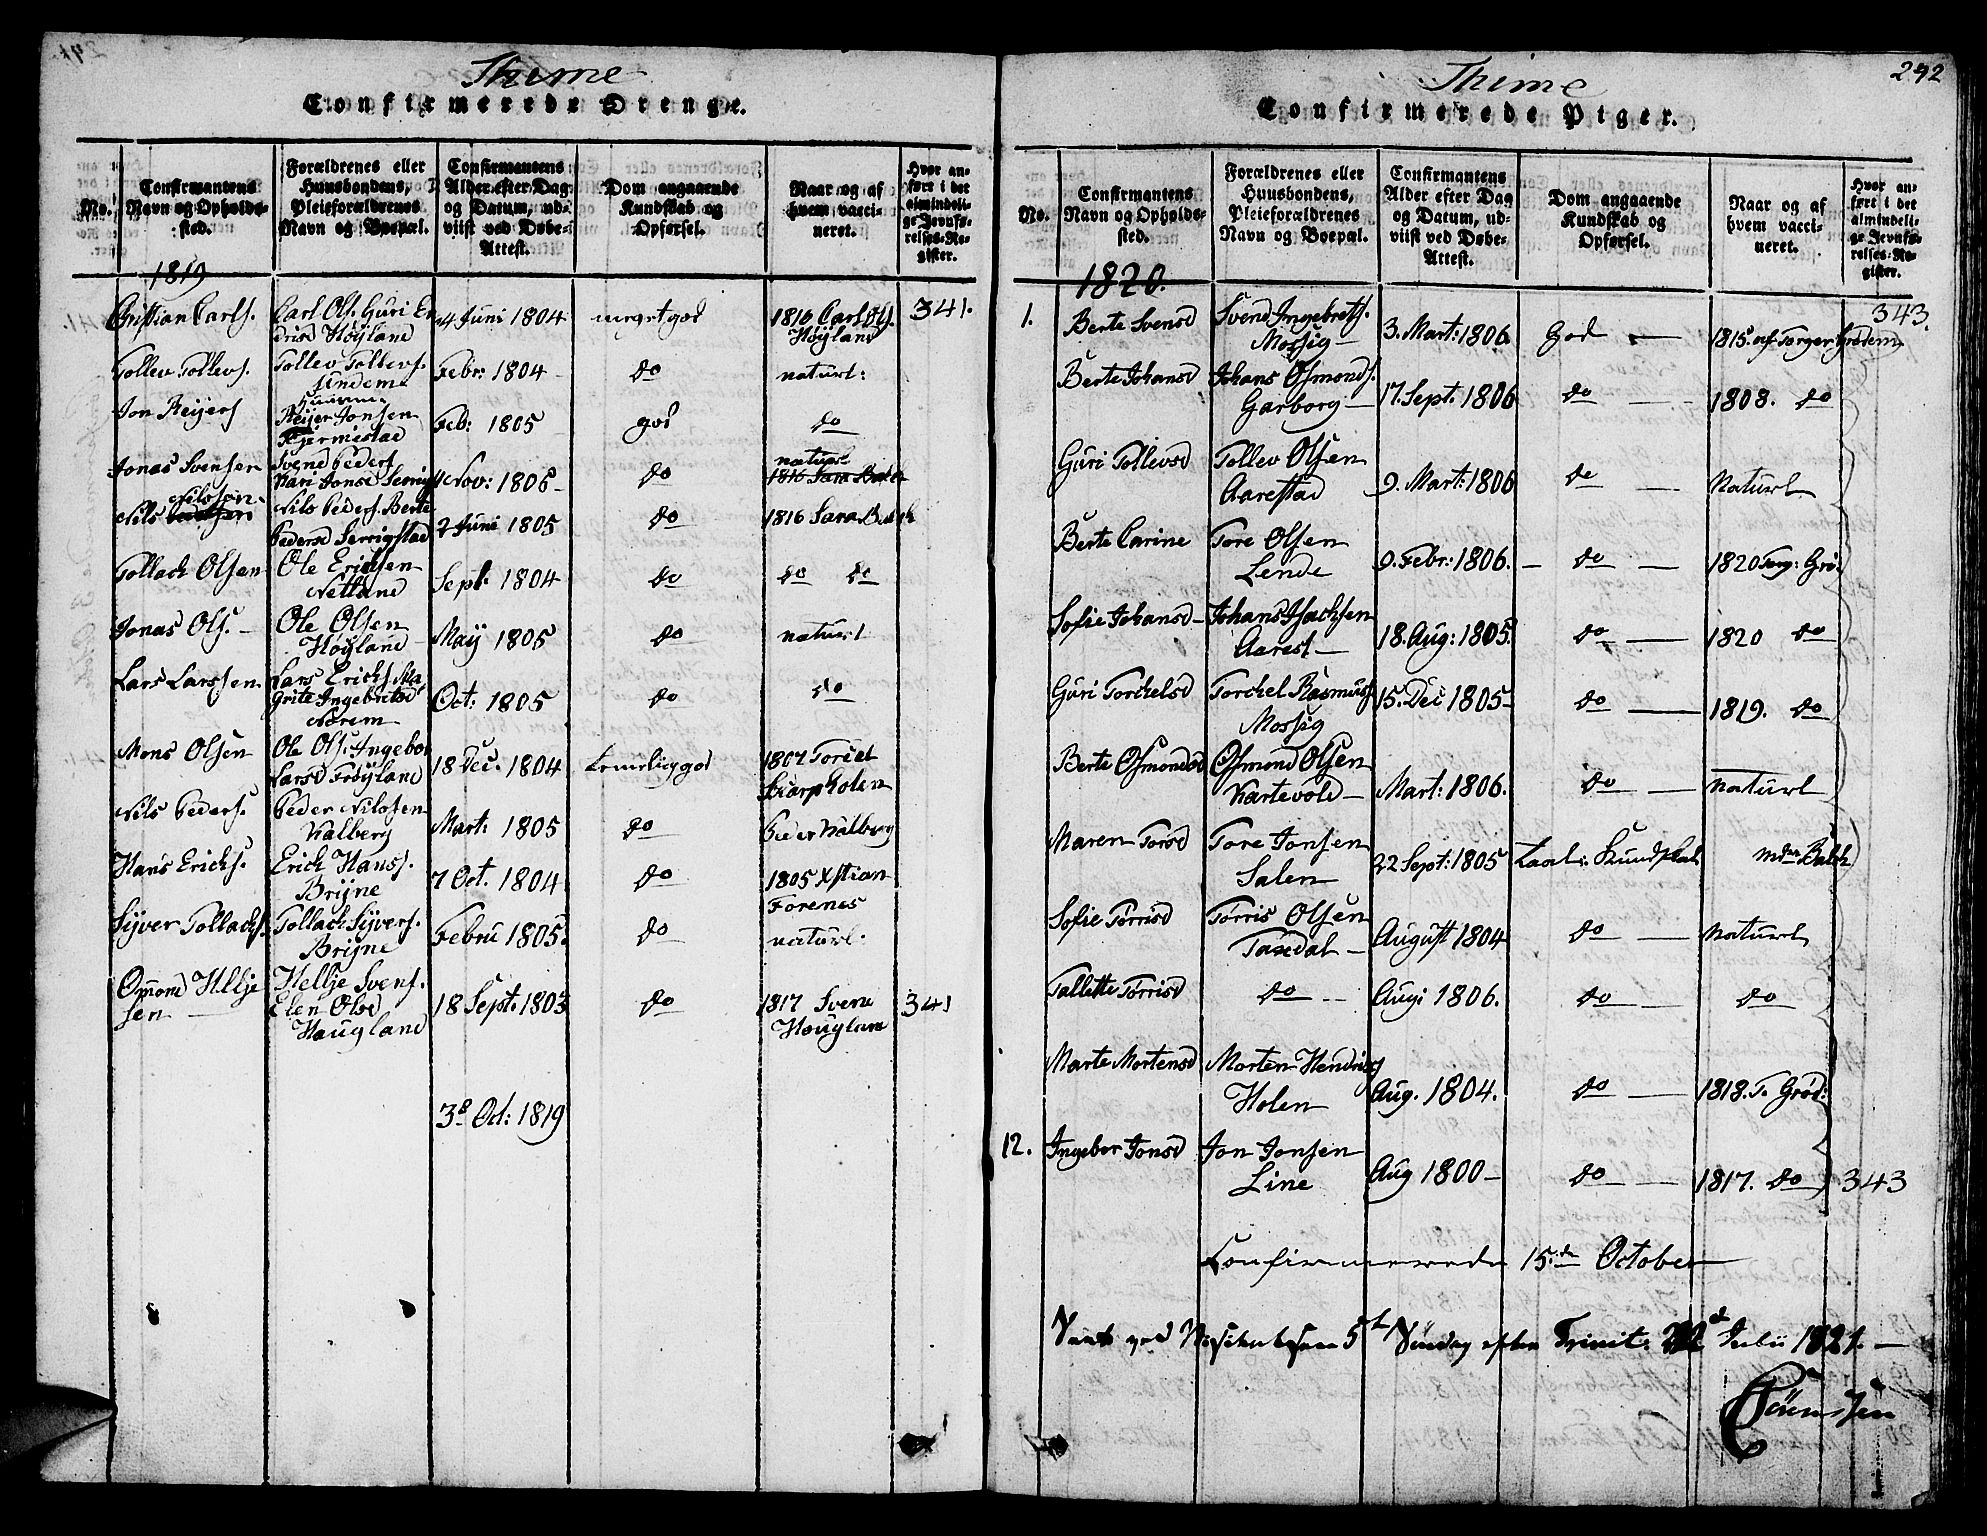 Thime
Confirmerede Drenge.
No.
Confirmantens Navn og Opholdssted.
Forældrenes eller Huusbondens, Pleieforældrenes Navn og Boepæl.
Confirmantens Alder efter Dag og Datum, udviist ved Døbe-Attest.
Dom angaaende Kundskab og Opførsel.
Naar og af hvem vaccineret.
Hvor anført i det almindelige Jevnførelses-Register.
1819
Cristian Carls. Carl Ols. Guri Er 4 Juni 1804 meget god 1816 Carl Ols. 341.
drisd Höyland Höyland
Tollev Tollevs. Tollev Tollevs. Febr: 1804 do naturl:
Undem
Jon Reijers Reijer Jonsen Feb: 1805 god do
Tjermestad
Jonas Svensen Svend Peders Nov: 1805 do naturl
Kari Jonsd Serrig 1816 Sara
Nilsen
Nils Nils Peders. Berte 2 Juni 1805 do 1816 Sara
Pedersd Serrigstad
Tollach Olsen Ole Ericksen Sept. 1804 do do do
Netland
Jonas Ols. Ole Olsen May 1805 do naturl
Höyland
Lars Larssen Lars Ericks. Ma Oct: 1805 do do
grite Ingebritsd
Norem
Mons Olsen Ole Ols. Ingebor 18 Dec. 1804 temelig god 1807
Larsd Fröyland
Nils Peders. Peder Nilssen Mart: 1805 do Peder Kalberg
Kalberg
Hans Ericks. Erick Hanss. 7 Oct. 1804 do 1805 Xstian
Brijne Forenes
Sijver Tollachs. Tollach Sijvers. Febru 1805. do naturl:
Brijne
Omond Hellje Hellje Svens. 18 Sept. 1803 do 1817 Svend 341
sen Elen Olsd Hougland
Haugland
3 Oct: 1819
242
Thime
Confirmerede Piger.
No.
Confirmantens Navn og Opholdssted.
Forældrenes eller Huusbondens, Pleieforældrenes Navn og Boepæl.
Confirmantens Alder efter Dag og Datum, udviist ved Døbe-Attest.
Dom angaaende Kundskab og Opførsel.
Naar og af hvem vaccineret.
Hvor anført i det almindelige Jevnførelses-Register.
1820.
1. Berte Svensd Svend Ingebretts. 3. Mart: 1806 God 1815 af Torger Grödem 343.
Mossig
Berte Johansd Johans Osmonds. 17. Sept. 1806 do 1808. do
Garborg
Guri Tollevsd Tollev Olsen 9. Mart: 1806 do Naturl
Aarestad
Berte Carine Tore Olsen 9. Febr: 1806. do 1820 Torg: Grö:
Lende
Sofie Johansd Johans Isachsen 18. Aug: 1805. do 1820 do
Aarest
Guri Torchelsd Torchel Rasmuss. 15. Dec 1805 do 1819. do
Mossig
Berte Osmondsd Osmond Olsen Mart: 1806. do Naturl
Kartevold
Maren Torsd Tore Jonsen 22 Sept: 1805 Laal: Kundskab
Salen
Sofie Torrisd Torris Olsen August 1804 do Naturl
Taxdal
Tallette Torrisd do Augi 1806. do do
Marte Mortensd Morten Hendrics Aug. 1804. do 1818. T. Gröd:
Holen
12. Ingebor Jonsd Jon Jonsen Aug 1800 do 1817. do 343
Line
Confirmerede 15.de October
5te Söndag efter Trinit: Julii 1821.
Sörensen